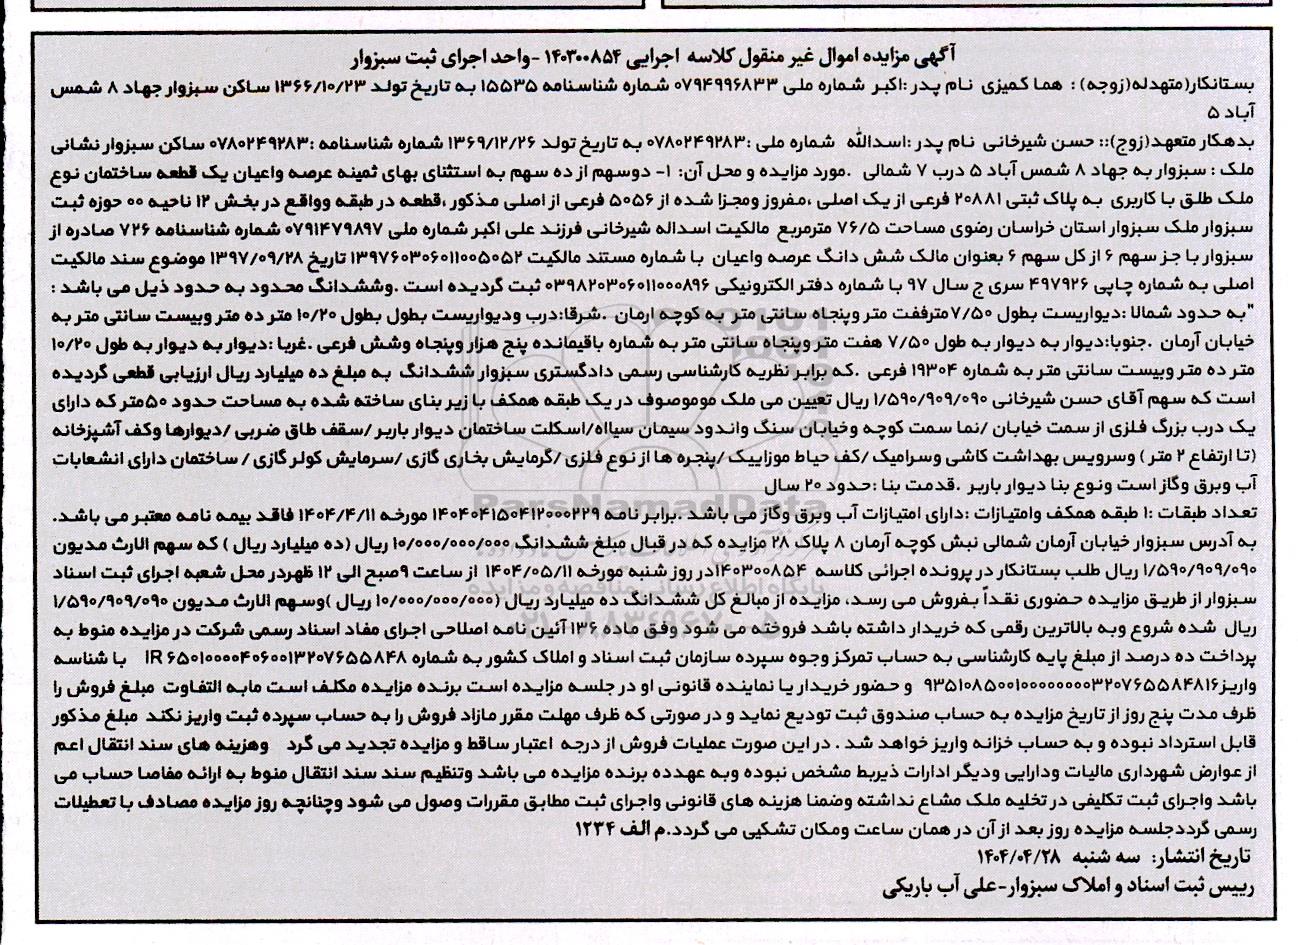 آگهی مزایده اموال غیر منقول کلاسه اجرایی ۱۴۰۳۰۰۸۵۴ -واحد اجرای ثبت سبزوار
بستانکار(متهدله(زوجه) : هما کمیزی نام پدر :اکبر شماره ملی ۰۷۹۴۹۹۶۸۳۳ شماره شناسنامه ۱۵۵۳۵ به تاریخ تولد ۱۳۶۶/۱۰/۲۳ ساکن سبزوار جهاد ۸ شمس
آباد ۵
بدهکار متعهد(زوج):: حسن شیرخانی نام پدر :اسدالله شماره ملی :۰۷۸۰۲۴۹۲۸۳ به تاریخ تولد ۱۳۶۹/۱۲/۲۶ شماره شناسنامه :۰۷۸۰۲۴۹۲۸۳ ساکن سبزوار نشانی
ملک : سبزوار به جهاد ۸ شمس آباد ۵ درب ۷ شمالی .مورد مزایده و محل آن: ۱- دوسهم از ده سهم به استثنای بهای ثمینه عرصه واعیان یک قطعه ساختمان نوع
ملک طلق با کاربری به پلاک ثبتی ۲۰۸۸۱ فرعی از یک اصلی ،مفروز ومجزا شده از ۵۰۵۶ فرعی از اصلی مذکور ،قطعه در طبقه وواقع در بخش ۱۲ ناحیه ۰۰ حوزه ثبت
سبزوار ملک سبزوار استان خراسان رضوی مساحت ۷۶/۵ مترمربع مالکیت اسداله شیرخانی فرزند علی اکبر شماره ملی ۰۷۹۱۴۷۹۸۹۷ شماره شناسنامه ۷۲۶ صادره از
سبزوار با جز سهم ۶ از کل سهم ۶ بعنوان مالک شش دانگ عرصه واعیان با شماره مستند مالکیت ۱۳۹۷۶۰۳۰۶۰۱۱۰۰۵۰۵۲ تاریخ ۱۳۹۷/۰۹/۲۸ موضوع سند مالکیت
اصلی به شماره چاپی ۴۹۷۹۲۶ سری ج سال ۹۷ با شماره دفتر الکترونیکی ۰۳۹۸۲۰۳۰۶۰۱۱۰۰۰۸۹۶ ثبت گردیده است .وششدانگ محدود به حدود ذیل می باشد :
"به حدود شمالا :دیواریست بطول ۷/۵۰مترففت متر وپنجاه سانتی متر به کوچه ارمان .شرقا:درب ودیواریست بطول بطول ۱۰/۲۰ متر ده متر وبیست سانتی متر به
خیابان آرمان .جنوبا:دیوار به دیوار به طول ۷/۵۰ هفت متر وپنجاه سانتی متر به شماره باقیمانده پنج هزار وپنجاه وشش فرعی .غربا :دیوار به دیوار به طول ۱۰/۲۰
متر ده متر وبیست سانتی متر به شماره ۱۹۳۰۴ فرعی .که برابر نظریه کارشناسی رسمی دادگستری سبزوار ششدانگ به مبلغ ده میلیارد ریال ارزیابی قطعی گردیده
است که سهم آقای حسن شیرخانی ۱/۵۹۰/۹۰۹/۰۹۰ ریال تعیین می ملک موموصوف در یک طبقه همکف با زیر بنای ساخته شده به مساحت حدود ۵۰متر که دارای
یک درب بزرگ فلزی از سمت خیابان /نما سمت کوچه وخیابان سنگ واندود سیمان سیااه/اسکلت ساختمان دیوار باربر /سقف طاق ضربی /دیوارها وکف آشپزخانه
(تا ارتفاع ۲ متر ) وسرویس بهداشت کاشی وسرامیک /کف حیاط موزاییک /پنجره ها از نوع فلزی /گرمایش بخاری گازی /سرمایش کولر گازی / ساختمان دارای انشعابات
آب وبرق وگاز است ونوع بنا دیوار باربر .قدمت بنا :حدود ۲۰ سال
تعداد طبقات :۱ طبقه همکف وامتیازات :دارای امتیازات آب وبرق وگاز می باشد .برابر نامه ۱۴۰۴۰۴۱۵۰۴۱۲۰۰۰۲۲۹ مورخه ۱۴۰۴/۴/۱۱ فاقد بیمه نامه معتبر می باشد.
به آدرس سبزوار خیابان آرمان شمالی نبش کوچه آرمان ۸ پلاک ۲۸ مزایده که در قبال مبلغ ششدانگ ۱۰/۰۰۰/۰۰۰/۰۰۰ ریال (ده میلیارد ریال ) که سهم الارث مدیون
۱/۵۹۰/۹۰۹/۰۹۰ ریال طلب بستانکار در پرونده اجرائی کلاسه ۱۴۰۳۰۰۸۵۴در روز شنبه مورخه ۱۴۰۴/۰۵/۱۱ از ساعت ۹صبح الی ۱۲ ظهردر محل شعبه اجرای ثبت اسناد
سبزوار از طریق مزایده حضوری نقداً بفروش می رسد، مزایده از مبالغ کل ششدانگ ده میلیارد ریال (۱۰/۰۰۰/۰۰۰/۰۰۰ ریال )وسهم الارث مدیون ۱/۵۹۰/۹۰۹/۰۹۰
ریال شده شروع وبه بالاترین رقمی که خریدار داشته باشد فروخته می شود وفق ماده ۱۳۶ آئین نامه اصلاحی اجرای مفاد اسناد رسمی شرکت در مزایده منوط به
پرداخت ده درصد از مبلغ پایه کارشناسی به حساب تمرکز وجوه سپرده سازمان ثبت اسناد و املاک کشور به شماره IR ۶۵۰۱۰۰۰۰۴۰۶۰۰۱۳۲۰۷۶۵۵۸۴۸ با شناسه
واریز۹۳۵۱۰۸۵۰۰۱۰۰۰۰۰۰۰۰۳۲۰۷۶۵۵۸۴۸۱۶ و حضور خریدار یا نماینده قانونی او در جلسه مزایده است برنده مزایده مکلف است مابه التفاوت مبلغ فروش را
ظرف مدت پنج روز از تاریخ مزایده به حساب صندوق ثبت تودیع نماید و در صورتی که ظرف مهلت مقرر مازاد فروش را به حساب سپرده ثبت واریز نکند مبلغ مذکور
قابل استرداد نبوده و به حساب خزانه واریز خواهد شد . در این صورت عملیات فروش از درجه اعتبار ساقط و مزایده تجدید می گرد وهزینه های سند انتقال اعم
از عوارض شهرداری مالیات ودارایی ودیگر ادارات ذیربط مشخص نبوده وبه عهدده برنده مزایده می باشد وتنظیم سند سند انتقال منوط به ارائه مفاصا حساب می
باشد واجرای ثبت تکلیفی در تخلیه ملک مشاع نداشته وضمنا هزینه های قانونی واجرای ثبت مطابق مقررات وصول می شود وچنانچه روز مزایده مصادف با تعطیلات
رسمی گرددجلسه مزایده روز بعد از آن در همان ساعت ومکان تشکیی می گردد.م الف ۱۲۳۴
تاریخ انتشار: سه شنبه ۱۴۰۴/۰۴/۲۸
رییس ثبت اسناد و املاک سبزوار-علی آب باریکی
ParsNamadData
پایگاه اطلاع رسانی مناقصه و مزایده